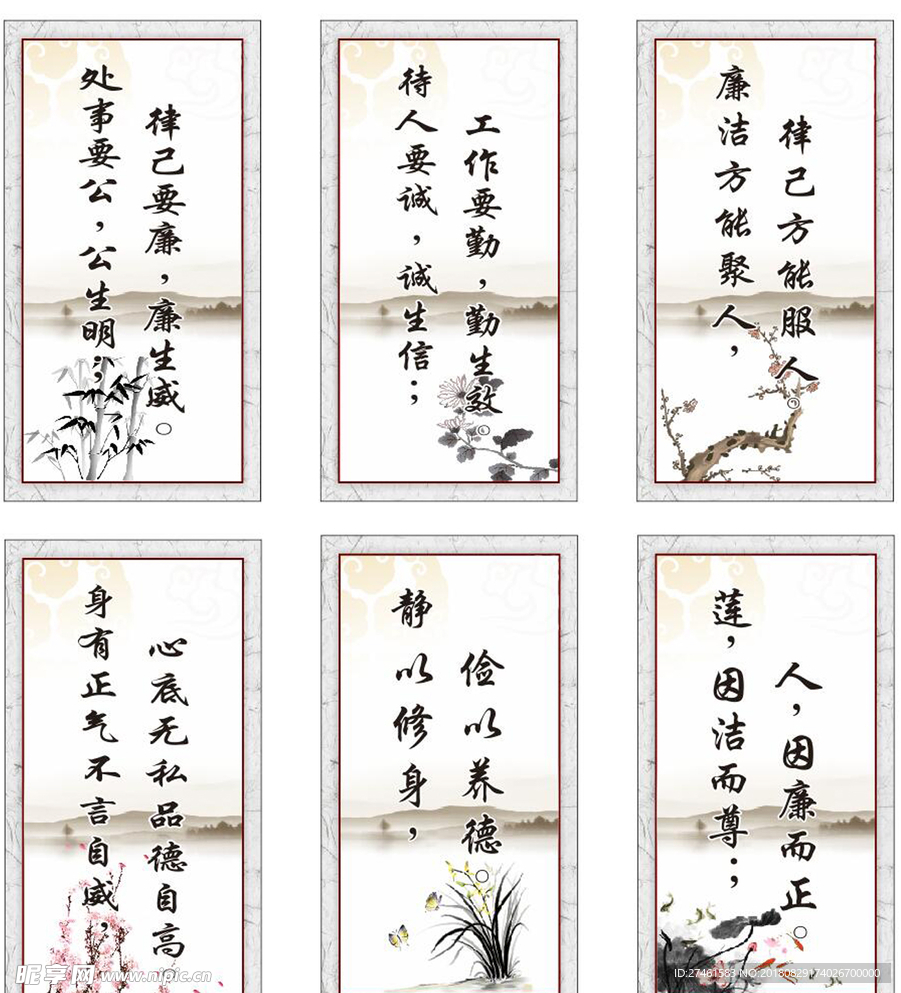 处事要公，公生明；
律己要廉，廉生威。
待人要诚，诚生信；
工作要勤，勤生效。
廉洁方能聚人，
律己方能服人。
身有正气不言自威，
心底无私品德自高。
静以修身，
俭以养德。
莲，因洁而尊；
人，因廉而正。
昵享网 www.nipic.cn
ID:27461583 NO:20180829174026700000